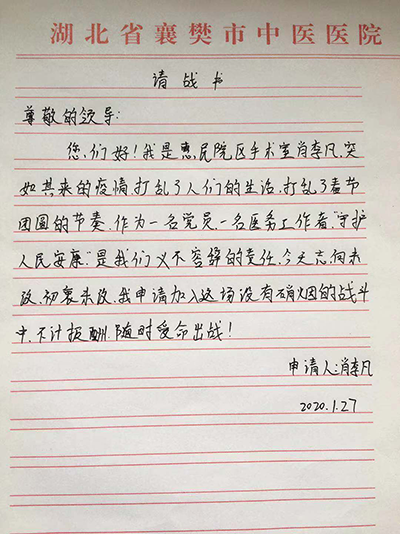 湖北省襄樊市中医医院
请战书
尊敬的领导:
您们好!我是惠民院区手术室肖李凡,突
如其来的疫情,打乱了人们的生活,打乱了春节
团圆的节奏。作为一名党员,一名医务工作者,“守护
人民安康”是我们义不容辞的责任,今天志向未
改,初衷未改,我申请加入这场没有硝烟的战斗
中,不计报酬,随时受命出战!
申请人:肖李凡
2020.1.27